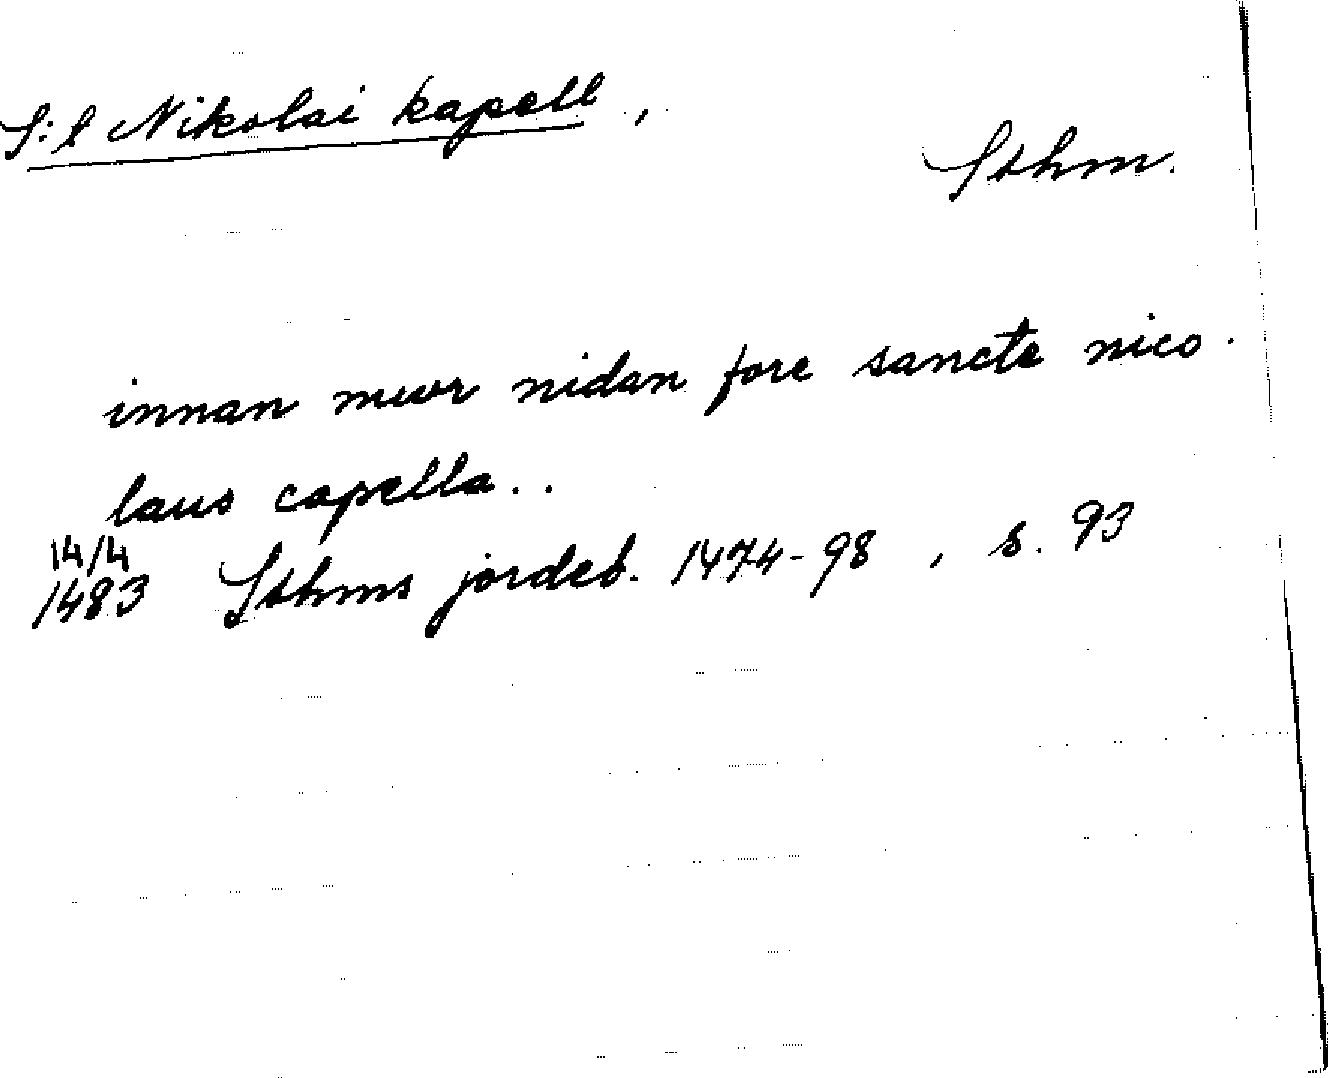 S:t Nikolai kapell,
Sthm.
innan mwr nidan fore sancte nico-
laus capella..
14/4
1483 Sthms jordeb. 1474-98, s. 93